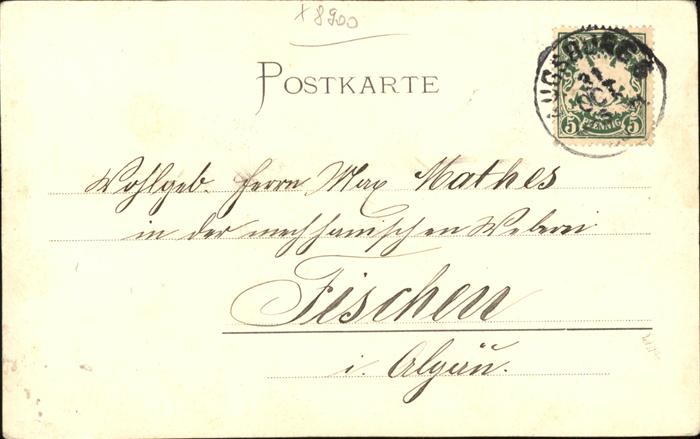 x 8900
POSTKARTE
AUGSBURG
31
OCT
5 PFENNIG 5
Wohlgeb. Herrn Max Mathes
in der mechhanischen Weberei
Fischen
i. Algäu.